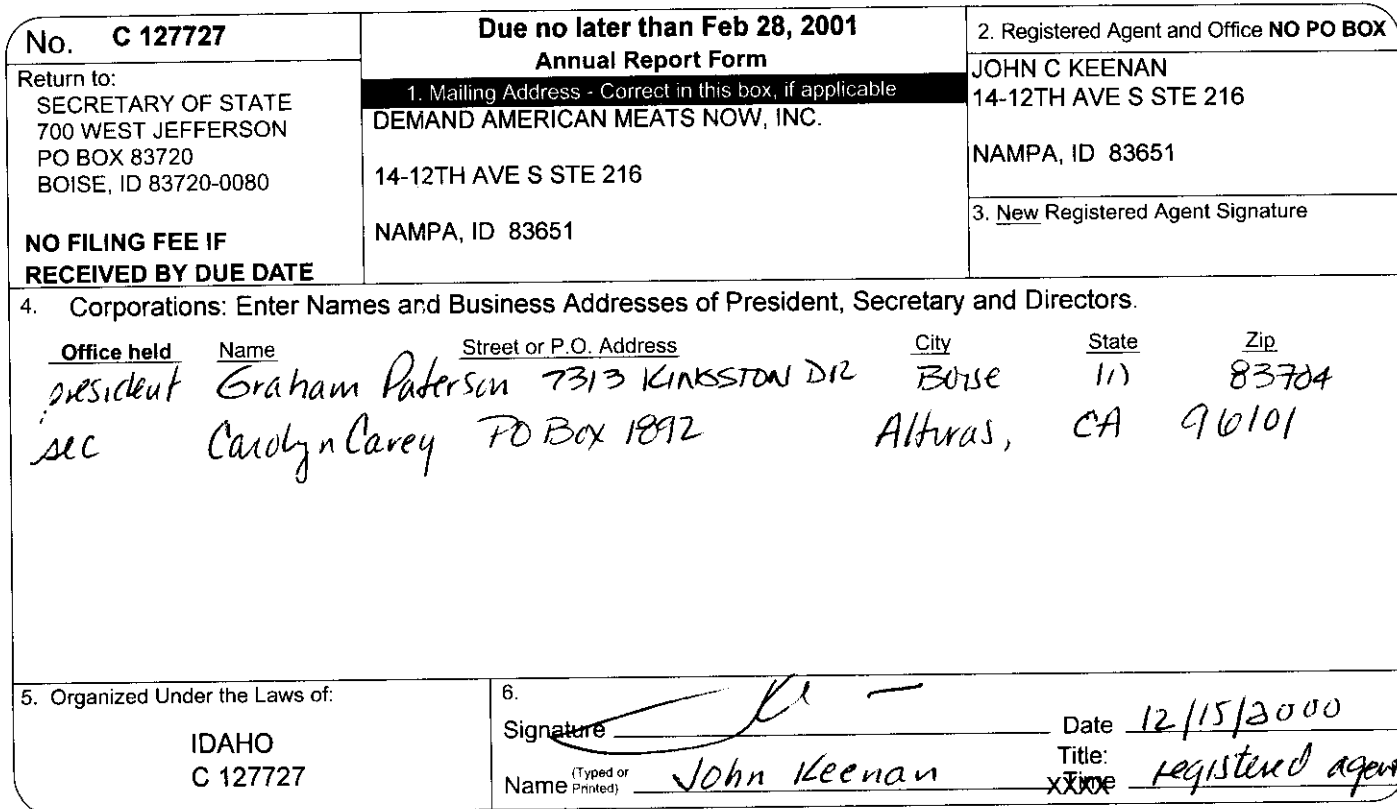 No. C 127727
Return to:
SECRETARY OF STATE
700 WEST JEFFERSON
PO BOX 83720
BOISE, ID 83720-0080
NO FILING FEE IF
RECEIVED BY DUE DATE
Due no later than Feb 28, 2001
Annual Report Form
1. Mailing Address - Correct in this box, if applicable
DEMAND AMERICAN MEATS NOW, INC.
14-12TH AVE S STE 216
NAMPA, ID 83651
2. Registered Agent and Office NO PO BOX
JOHN C KEENAN
14-12TH AVE S STE 216
NAMPA, ID 83651
3. New Registered Agent Signature
4. Corporations: Enter Names and Business Addresses of President, Secretary and Directors.
Office held Name Street or P.O. Address City State Zip
president Graham Paterson 7313 KINGSTON DR Boise ID 83704
sec Carolyn Carey PO Box 1892 Alturas, CA 96101
5. Organized Under the Laws of:
IDAHO
C 127727
6.
Signature
Date 12/15/2000
Name (Typed or Printed) John Keenan
Title: registered agent